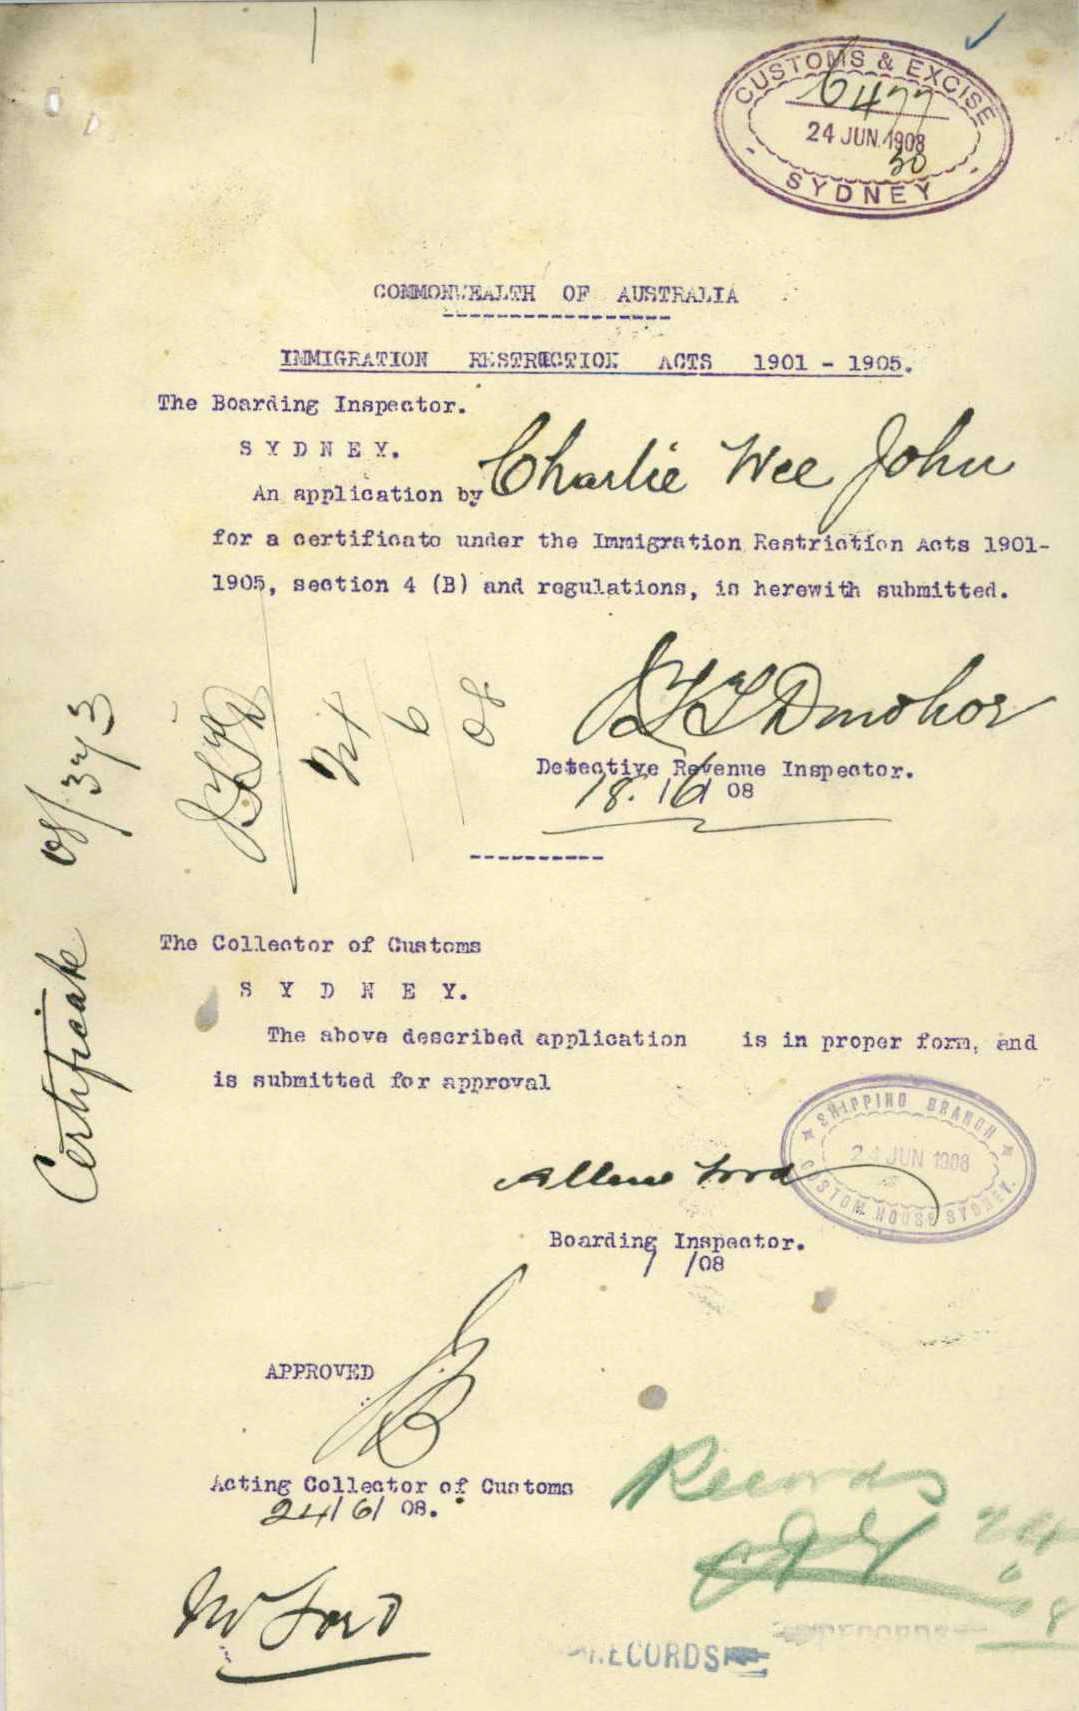 CUSTOMS & EXCISE
6477
24 JUN. 1908
30
SYDNEY
COMMONWEALTH OF AUSTRALIA
IMMIGRATION RESTRICTION ACTS 1901 - 1905.
The Boarding Inspector.
SYDNEY.
An application by Charlie Wee John
for a certificate under the Immigration Restriction Acts 1901-
1905, section 4 (B) and regulations, is herewith submitted.
24 6 08
Donohoe
Detective Revenue Inspector.
18. /6/ 08
Certificate 08/373
The Collector of Customs
SYDNEY.
The above described application is in proper form, and
is submitted for approval
SHIPPING BRANCH
24 JUN 1908
CUSTOM HOUSE SYDNEY.
Boarding Inspector.
/ /08
APPROVED
Acting Collector of Customs
24/6/ 08.
Records
24
6
08
Mr Ford
RECORDS
RECORDS